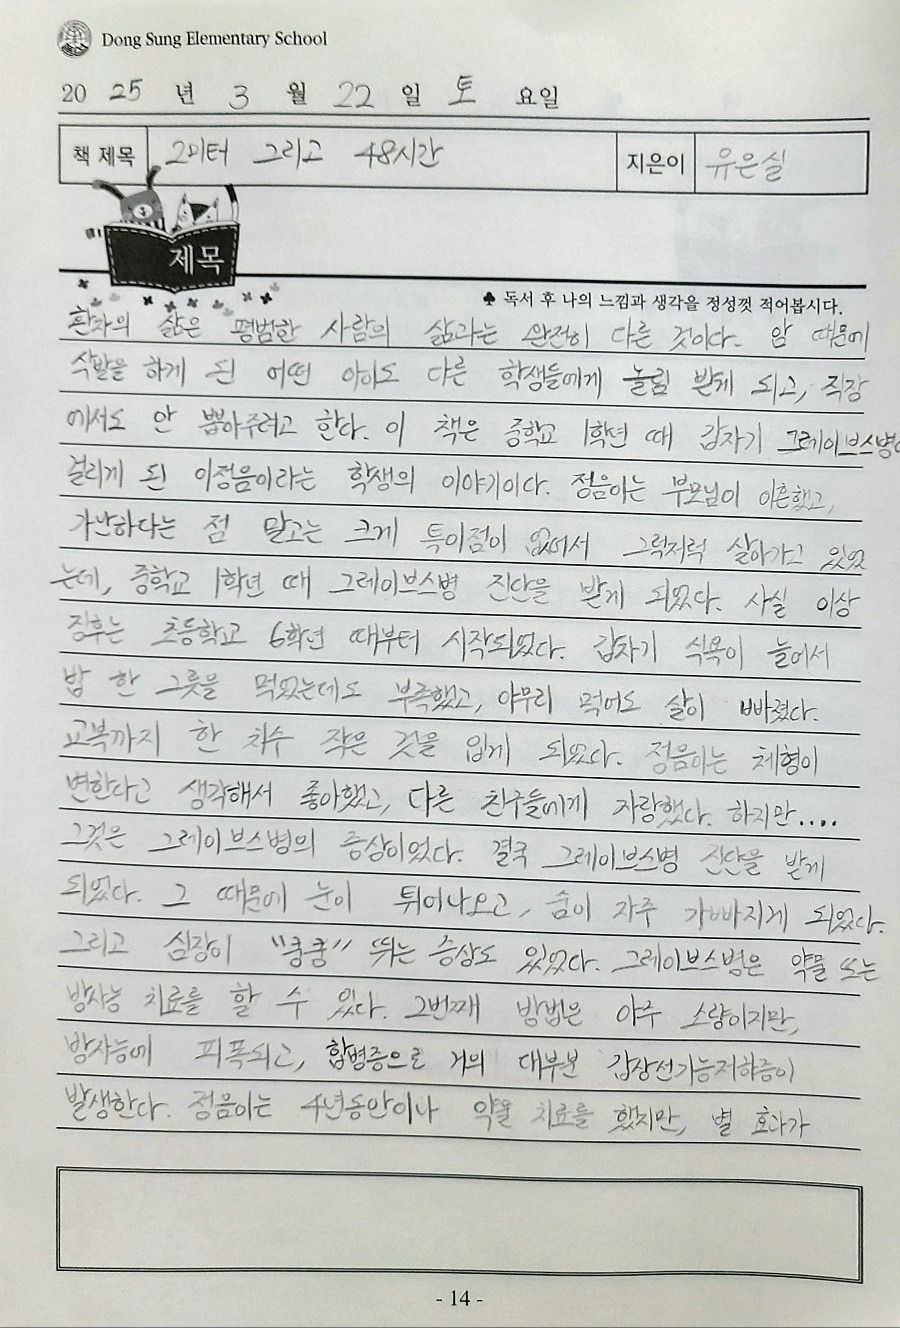 Dong Sung Elementary School
20 25 년 3 월 22 일 토 요일
책 제목 2미터 그리고 48시간 지은이 유은실
제목
♣ 독서 후 나의 느낌과 생각을 정성껏 적어봅시다.
환자의 삶은 평범한 사람의 삶과는 완전히 다른 것이다. 암 때문에
삭발을 하게 된 어떤 아이도 다른 학생들에게 놀림 받게 되고, 직장
에서도 안 뽑아주려고 한다. 이 책은 중학교 1학년 때 갑자기 그레이브스병에
걸리게 된 이정음이라는 학생의 이야기이다. 정음이는 부모님이 이혼했고,
가난하다는 점 말고는 크게 특이점이 없어서 그럭저럭 살아가고 있었
는데, 중학교 1학년 때 그레이브스병 진단을 받게 되었다. 사실 이상
징후는 초등학교 6학년 때부터 시작되었다. 갑자기 식욕이 늘어서
밥 한 그릇을 먹었는데도 부족했고, 아무리 먹어도 살이 빠졌다.
교복까지 한 치수 작은 것을 입게 되었다. 정음이는 체형이
변한다고 생각해서 좋아했고, 다른 친구들에게 자랑했다. 하지만....
그것은 그레이브스병의 증상이었다. 결국 그레이브스병 진단을 받게
되었다. 그 때문에 눈이 튀어나오고, 숨이 자주 가빠지게 되었다.
그리고 심장이 "쿵쿵" 뛰는 증상도 있었다. 그레이브스병은 약물 또는
방사능 치료를 할 수 있다. 2번째 방법은 아주 소량이지만,
방사능에 피폭되고, 합병증으로 거의 대부분 갑상선기능저하증이
발생한다. 정음이는 4년동안이나 약물 치료를 했지만, 별 효과가
- 14 -